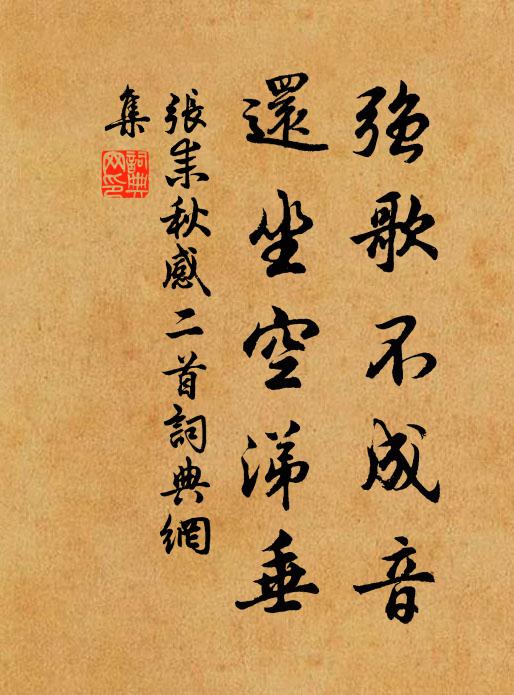 強歌不成音
還坐空涕垂
張耒秋感二首詞典網
集
詞典網印